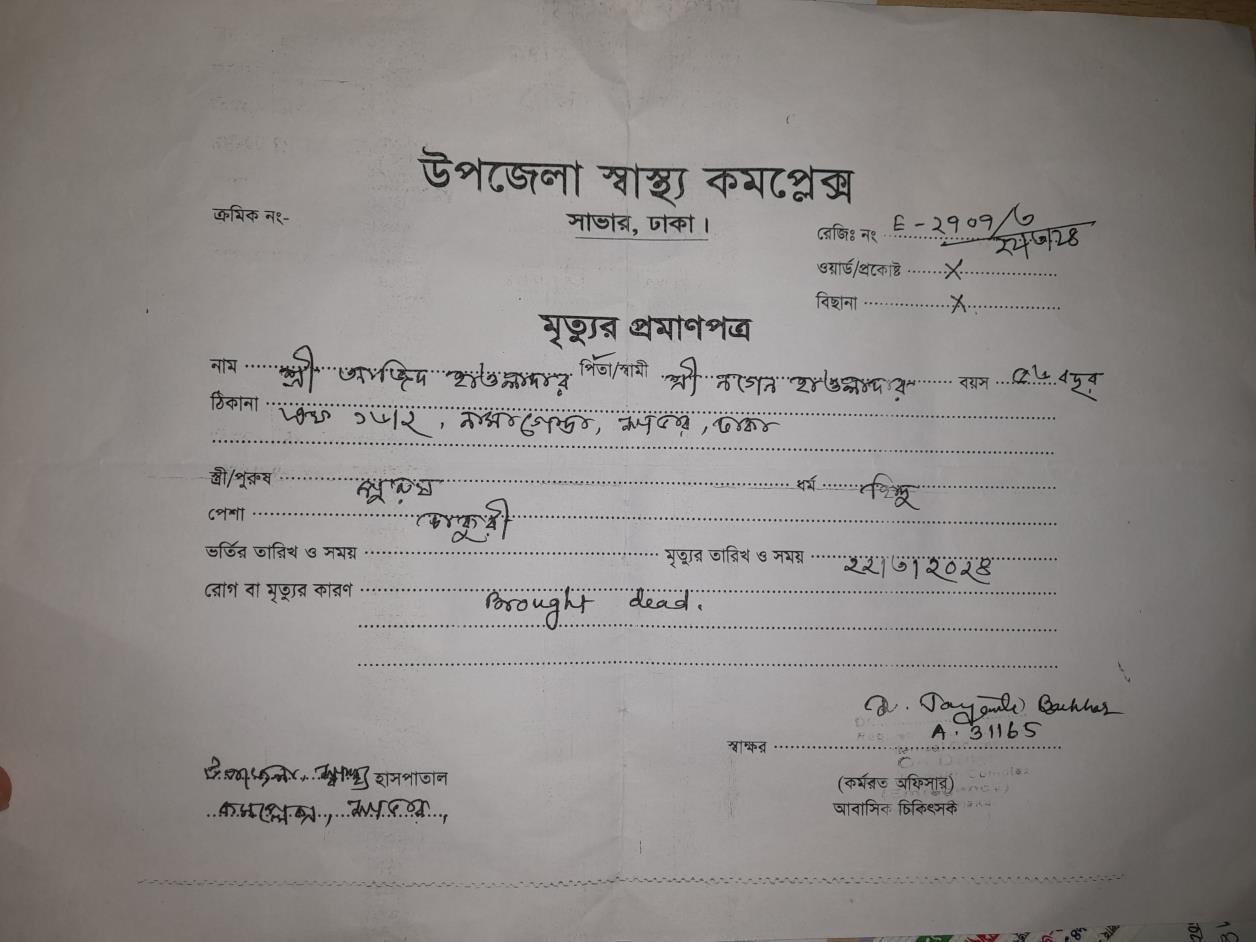 উপজেলা স্বাস্থ্য কমপ্লেক্স
সাভার, ঢাকা।
ক্রমিক নং-
রেজিঃ নং E-২৭০৭/৩
২২/৩/২৪
ওয়ার্ড/প্রকোষ্ট X
বিছানা X
মৃত্যুর প্রমাণপত্র
নাম শ্রী হাওলাদার পিতা/স্বামী শ্রী নগেন হাওলাদার বয়স বছর
ঠিকানা ১৬/২, সাভার, ঢাকা
স্ত্রী/পুরুষ পুরুষ ধর্ম হিন্দু
পেশা চাকুরী
ভর্তির তারিখ ও সময় মৃত্যুর তারিখ ও সময় ২২/৩/২০২৪
রোগ বা মৃত্যুর কারণ Brought dead.
Dr.
A. 31165
স্বাক্ষর
(কর্মরত অফিসার)
আবাসিক চিকিৎসক
উপজেলা স্বাস্থ্য হাসপাতাল
কমপ্লেক্স, সাভার,